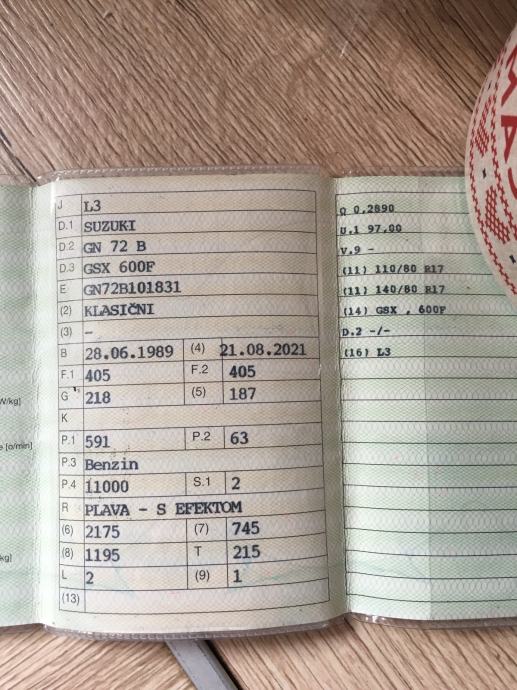 W/kg]
e [o/min]
kg]
J L3
D.1 SUZUKI
D.2 GN 72 B
D.3 GSX 600F
E GN72B101831
(2) KLASIČNI
(3) –
B 28.06.1989 (4) 21.08.2021
F.1 405 F.2 405
G 218 (5) 187
K
P.1 591 P.2 63
P.3 Benzin
P.4 11000 S.1 2
R PLAVA - S EFEKTOM
(6) 2175 (7) 745
(8) 1195 T 215
L 2 (9) 1
(13)
Q 0,2890
U.1 97,00
V.9 -
(11) 110/80 R17
(11) 140/80 R17
(14) GSX , 600F
D.2 -/-
(16) L3